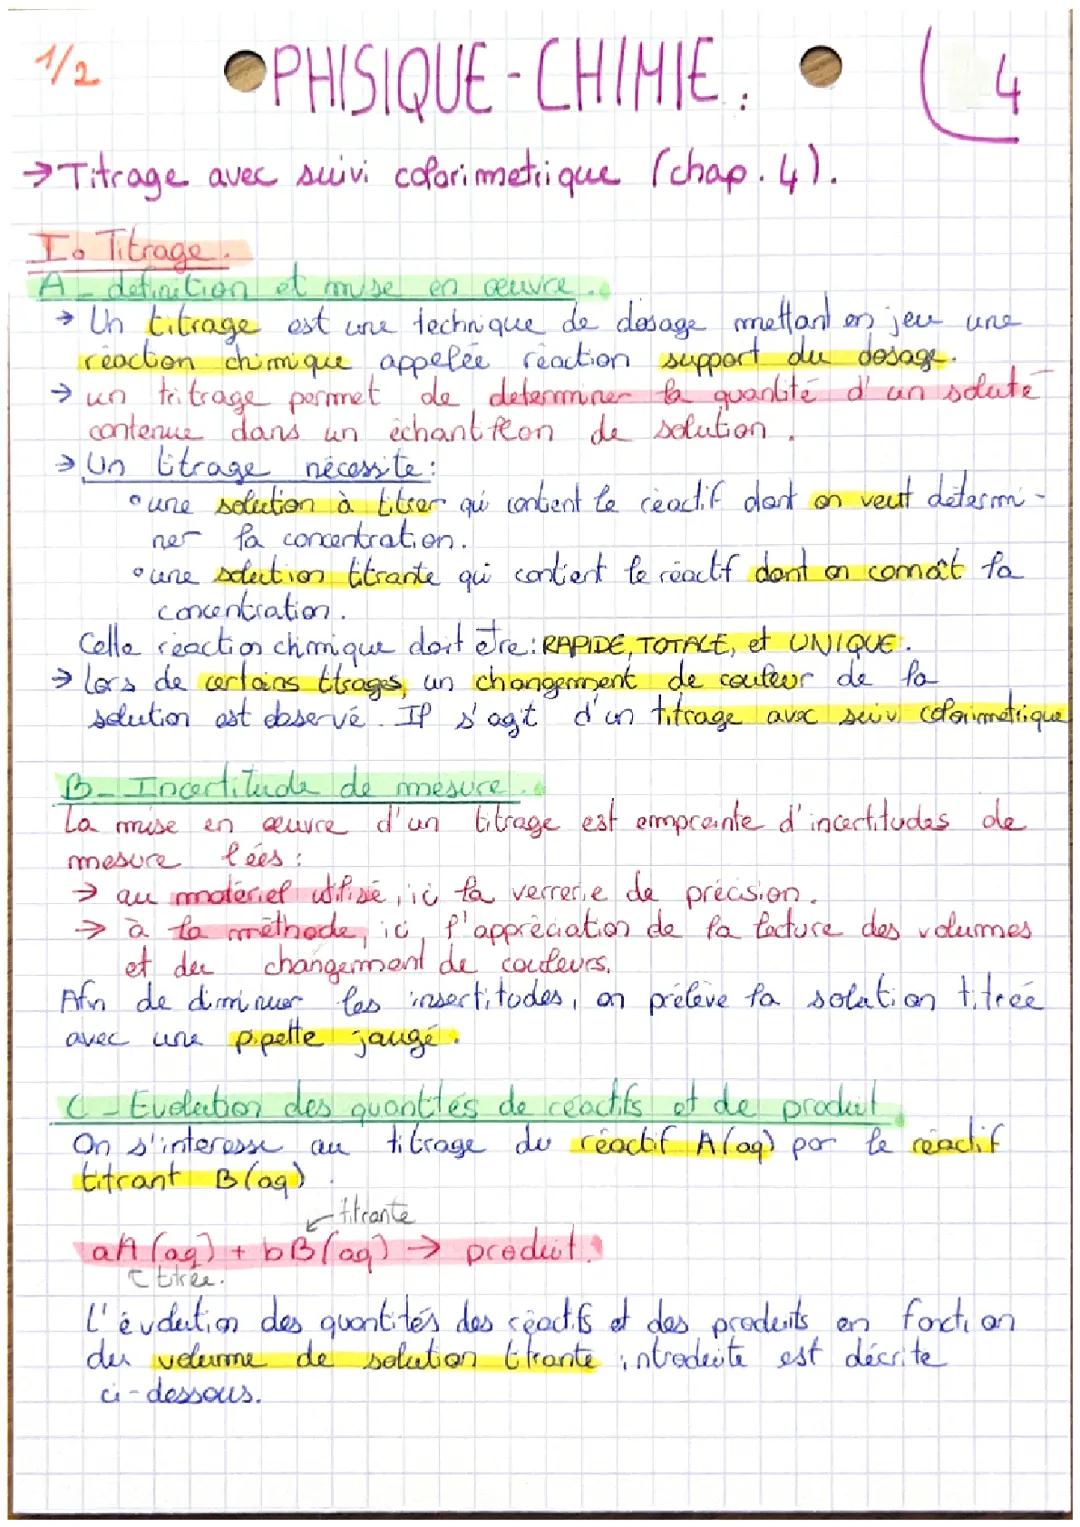 1/2
PHISIQUE-CHIMIE.
4
→ Titrage avec suivi colorimetrique (chap. 4).
I. Titrage.
A - definition et mise en œuvre.
→ Un titrage est une technique de dosage mettant en jeu une
réaction chimique appelée réaction support du dosage.
→ un tritrage permet de determiner la quantité d'un soluté
contenue dans un échantillon de solution.
→ Un titrage nécessite :
• une solution à titrer qui contient le réactif dont on veut détermi-
ner la concentration.
• une solution titrante qui contient le réactif dont on connaît la
concentration.
Cette réaction chimique doit être : RAPIDE, TOTALE, et UNIQUE.
→ Lors de certains titrages, un changement de couleur de la
solution est observé. Il s'agit d'un titrage avec suivi colorimetrique
B - Incertitude de mesure.
La mise en œuvre d'un titrage est empreinte d'incertitudes de
mesure liées :
→ au matériel utilisé, ici la verrerie de précision.
→ à la méthode, ici l'appréciation de la lecture des volumes
et du changement de couleurs.
Afin de diminuer les insertitudes, on prélève la solution titrée
avec une pipette jaugé.
C - Evolution des quantités de réactifs et de produit
On s'interesse au titrage du réactif A(aq) par le réactif
titrant B(aq)
titrante
aA (aq) + bB(aq) → produit.
titrée.
L'évolution des quantités des réactifs et des produits en fonction
du volume de solution titrante introduite est décrite
ci-dessous.